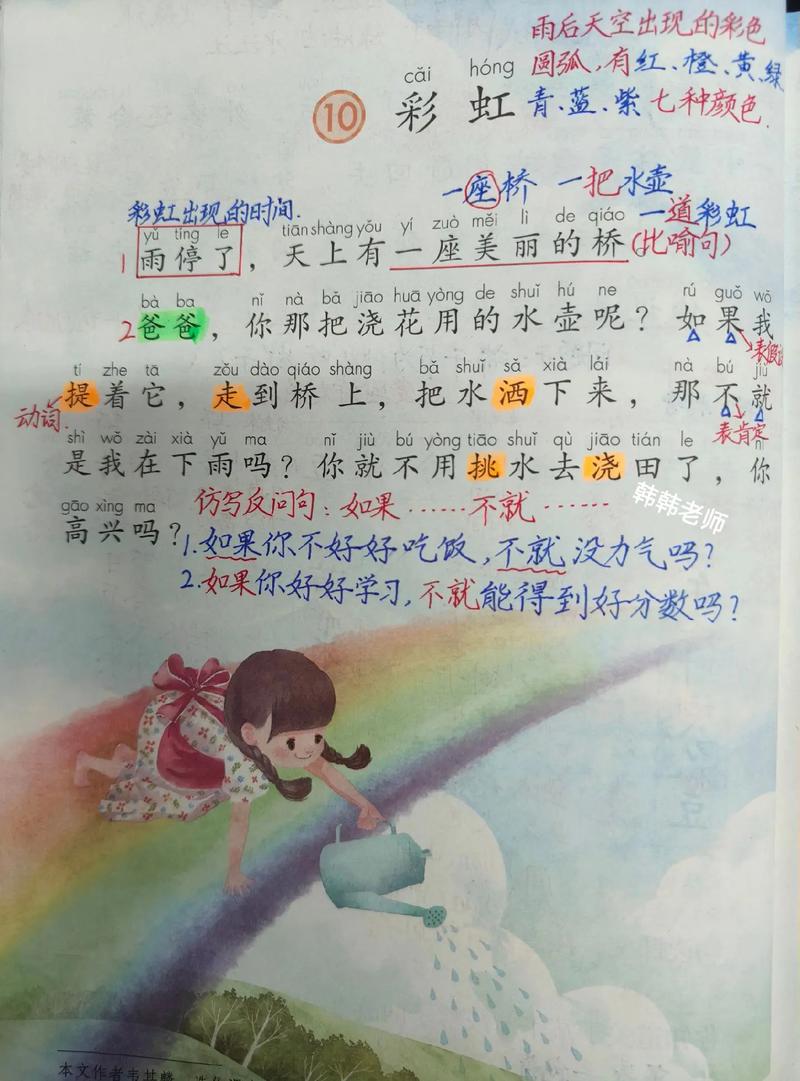 雨后天空出现的彩色
圆弧,有红、橙、黄、绿
青、蓝、紫 七种颜色.
cǎi hóng
10 彩虹
一座桥 一把水壶
彩虹出现的时间. 一道彩虹
yǔ tíng le tiān shàng yǒu yí zuò měi lì de qiáo
1 雨停了,天上有一座美丽的桥(比喻句)
bà ba nǐ nà bǎ jiāo huā yòng de shuǐ hú ne rú guǒ wǒ
2 爸爸,你那把浇花用的水壶呢?如果我
tí zhe tā zǒu dào qiáo shàng bǎ shuǐ sǎ xià lái nà bú jiù
提着它,走到桥上,把水洒下来,那不就
动词. 表肯定
shì wǒ zài xià yǔ ma nǐ jiù bú yòng tiāo shuǐ qù jiāo tián le nǐ
是我在下雨吗?你就不用挑水去浇田了,你
gāo xìng ma
高兴吗?
仿写反问句:如果……不就……
韩韩老师
1.如果你不好好吃饭,不就没力气吗?
2.如果你好好学习,不就能得到好分数吗?
本文作者韦其麟